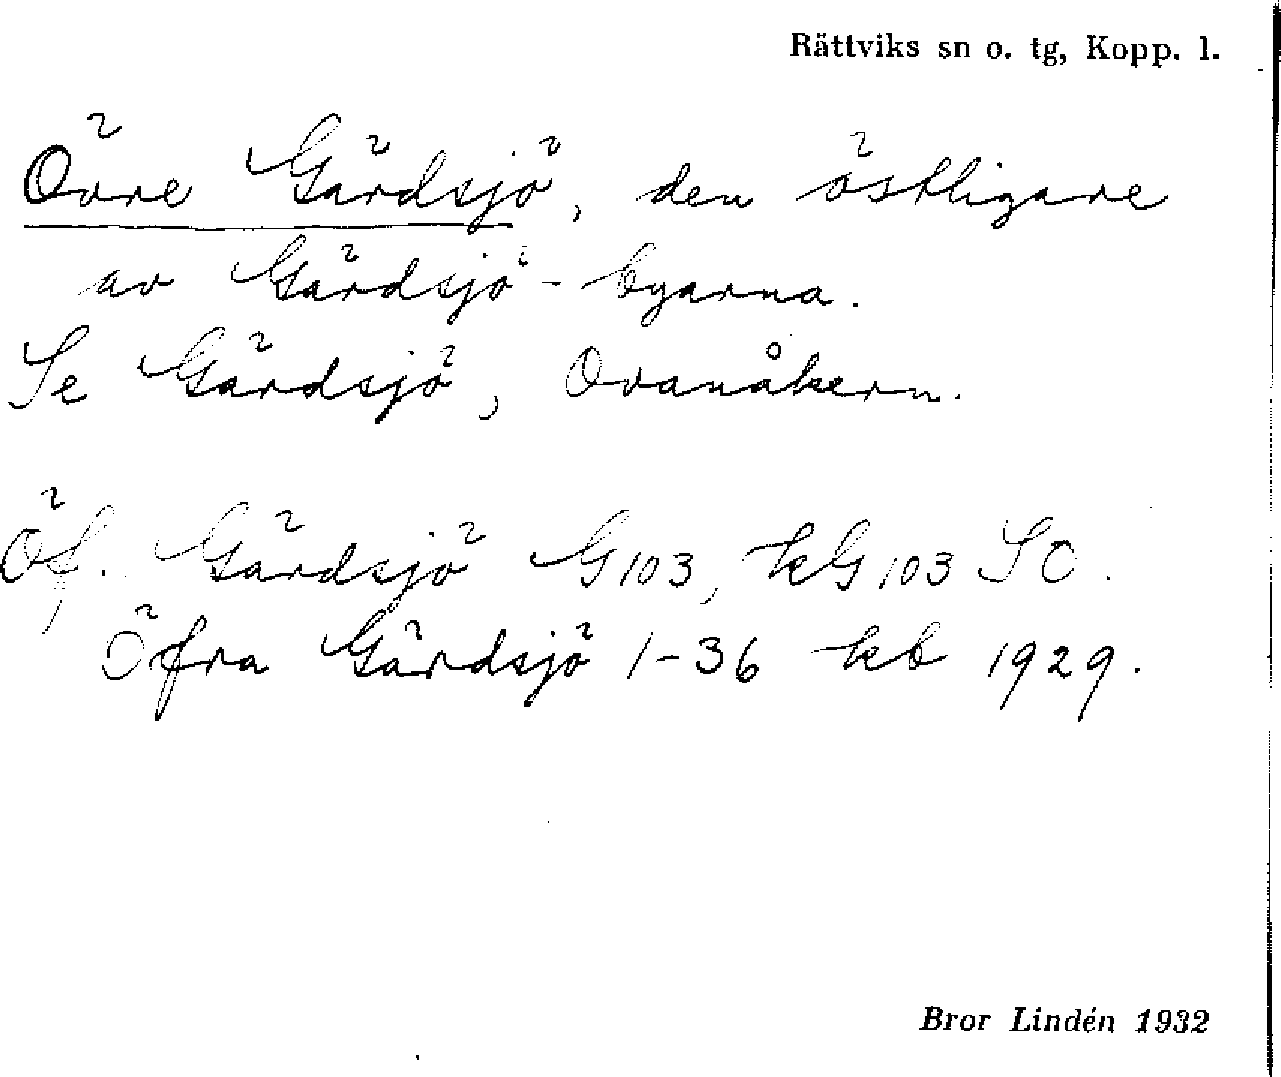 Rättviks sn o. tg, Kopp. l.
Övre Gärdsjö, den östligare
av Gärdsjö-byarna.
Se Gärdsjö, Ovanåkern.
Öf. Gärdsjö G103, kG103 SO.
Öfra Gärdsjö 1-36 kb 1929.
Bror Lindén 1932